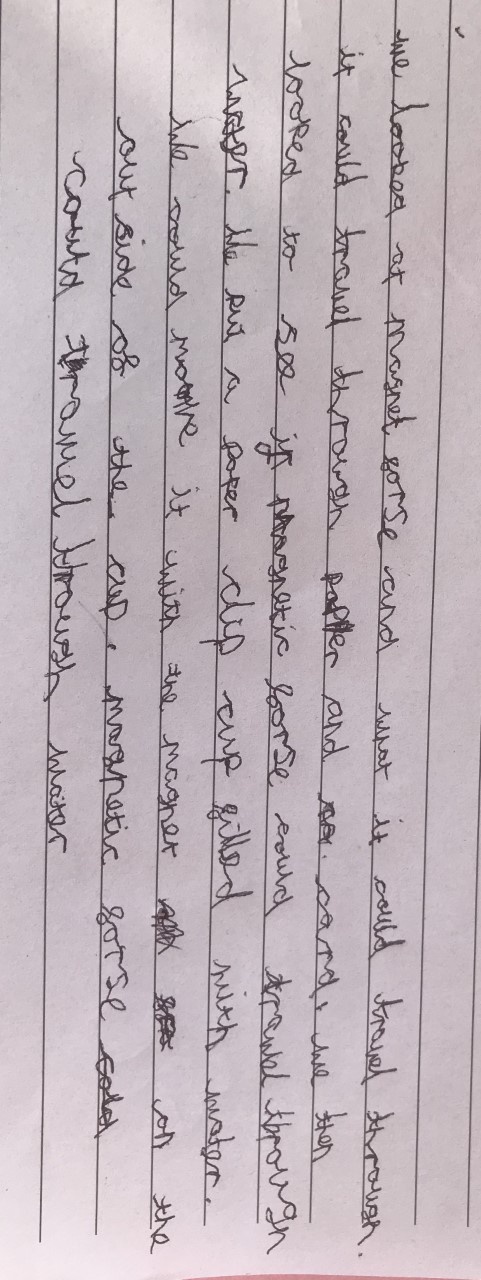 we looked at magnet forse and what it could travel through.
it could travel through paper and card. we then
looked to see if magnetic forse could travel through
water. We put a paper clip cup filled with water.
We could move it with the magnet on the
out side of the. cup. magnetic forse could
could travel through water